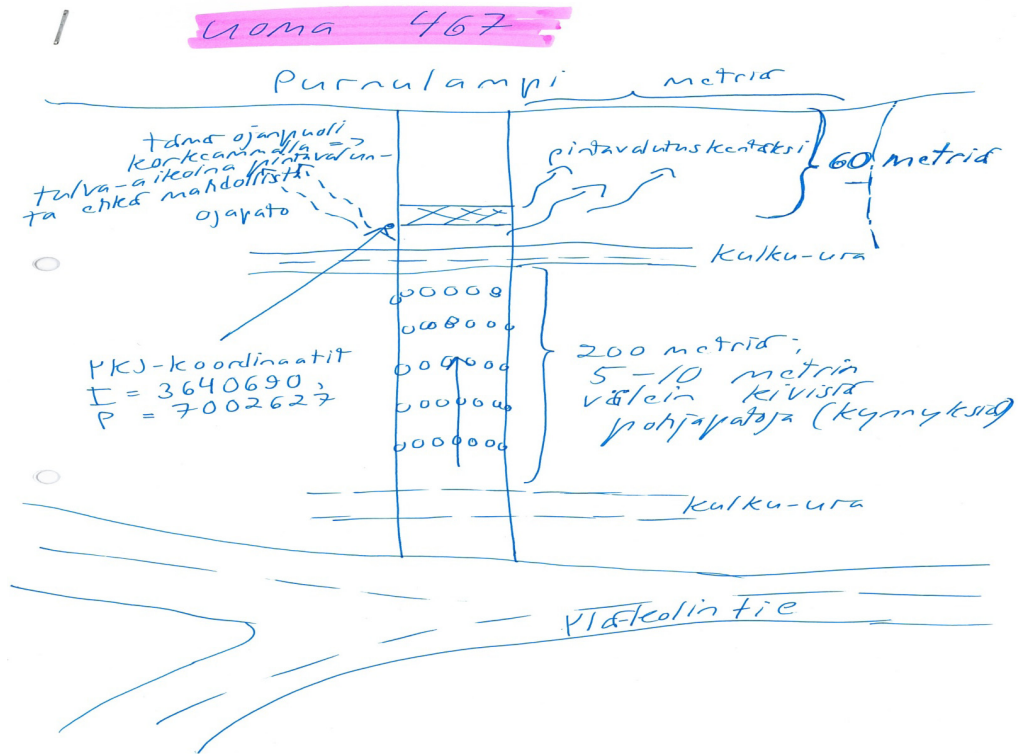 uoma 467
Purnulampi
metriä
tämä ojanpuoli
korkeammalla =>
tulva-aikoina pintavalun-
ta ehkä mahdollista
ojapato
pintavalutuskentäksi
60 metriä
kulku-ura
YKJ-koordinaatit
I = 3640690,
P = 7002627
200 metriä;
5-10 metrin
välein kivisiä
pohjapatoja (kynnyksiä)
kulku-ura
Ylä-Kolintie